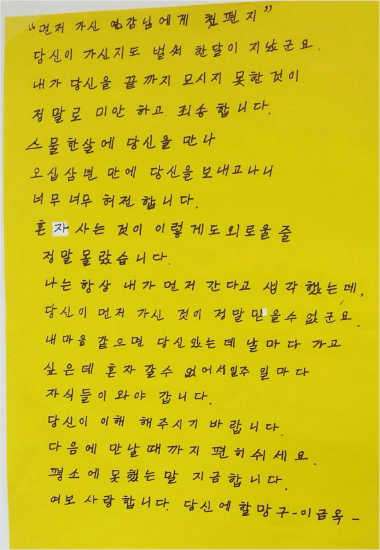 "먼저 가신 영감님에게 쓴편지"
당신이 가신지도 벌써 한달이 지났군요.
내가 당신을 끝까지 모시지 못한 것이
정말로 미안 하고 죄송 합니다.
스물한살에 당신을 만나
오십삼면 만에 당신을 보내고나니
너무 너무 허전 합니다.
혼자 사는 것이 이렇게도 외로울 줄
정말 몰랐습니다.
나는 항상 내가 먼저 간다고 생각 했는데,
당신이 먼저 가신 것이 정말 믿을수 없군요.
내마음 같으면 당신있는데 날마다 가고
싶은데 혼자 갈수 없어서일주 일마다
자식들이 와야 갑니다.
당신이 이해 해주시기 바랍니다.
다음에 만날때까지 편히쉬세요.
평소에 못했는 말 지금합니다.
여보 사랑합니다. 당신에할망구-이금옥-